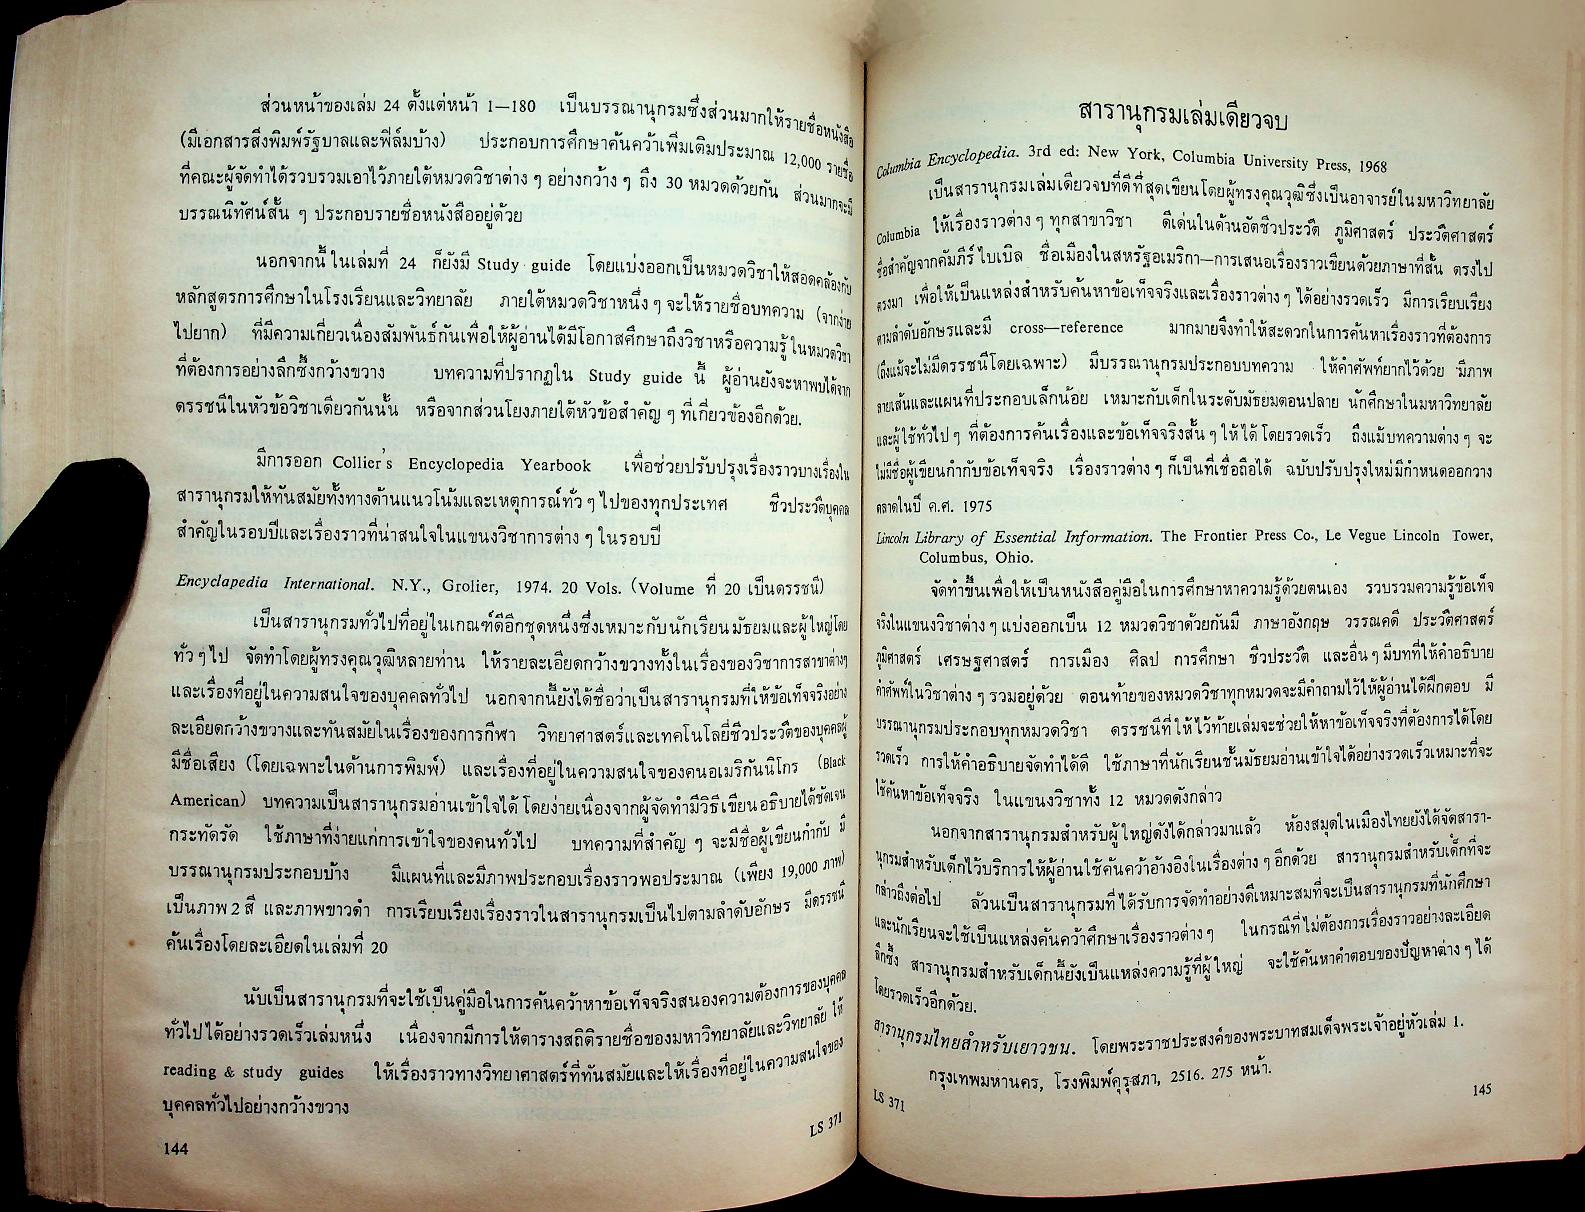 ส่วนหน้าของเล่ม 24 ตั้งแต่หน้า 1—180 เป็นบรรณานุกรมซึ่งส่วนมากให้รายชื่อหนังสือ
(มีเอกสารสิ่งพิมพ์รัฐบาลและฟิล์มบ้าง) ประกอบการศึกษาค้นคว้าเพิ่มเติมประมาณ 12,000 รายชื่อ
ที่คณะผู้จัดทำได้รวบรวมเอาไว้ภายใต้หมวดวิชาต่าง ๆ อย่างกว้าง ๆ ถึง 30 หมวดด้วยกัน ส่วนมากจะมี
บรรณนิทัศน์สั้น ๆ ประกอบรายชื่อหนังสืออยู่ด้วย
นอกจากนี้ ในเล่มที่ 24 ก็ยังมี Study guide โดยแบ่งออกเป็นหมวดวิชาให้สอดคล้องกับ
หลักสูตรการศึกษาในโรงเรียนและวิทยาลัย ภายใต้หมวดวิชาหนึ่ง ๆ จะให้รายชื่อบทความ (จากง่าย
ไปยาก) ที่มีความเกี่ยวเนื่องสัมพันธ์กันเพื่อให้ผู้อ่านได้มีโอกาสศึกษาถึงวิชาหรือความรู้ในหมวดวิชา
ที่ต้องการอย่างลึกซึ้งกว้างขวาง บทความที่ปรากฏใน Study guide นี้ ผู้อ่านยังจะหาพบได้จาก
ดรรชนีในหัวข้อวิชาเดียวกันนั้น หรือจากส่วนโยงภายใต้หัวข้อสำคัญ ๆ ที่เกี่ยวข้องอีกด้วย.
มีการออก Collier's Encyclopedia Yearbook เพื่อช่วยปรับปรุงเรื่องราวบางเรื่องใน
สารานุกรมให้ทันสมัยทั้งทางด้านแนวโน้มและเหตุการณ์ทั่ว ๆ ไปของทุกประเทศ ชีวประวัติบุคคล
สำคัญในรอบปีและเรื่องราวที่น่าสนใจในแขนงวิชาการต่าง ๆ ในรอบปี
Encyclapedia International. N.Y., Grolier, 1974. 20 Vols. (Volume ที่ 20 เป็นดรรชนี)
เป็นสารานุกรมทั่วไปที่อยู่ในเกณฑ์ดีอีกชุดหนึ่งซึ่งเหมาะกับนักเรียนมัธยมและผู้ใหญ่โดย
ทั่ว ๆ ไป จัดทำโดยผู้ทรงคุณวุฒิหลายท่าน ให้รายละเอียดกว้างขวางทั้งในเรื่องของวิชาการสาขาต่างๆ
และเรื่องที่อยู่ในความสนใจของบุคคลทั่วไป นอกจากนี้ยังได้ชื่อว่าเป็นสารานุกรมที่ให้ข้อเท็จจริงอย่าง
ละเอียดกว้างขวางและทันสมัยในเรื่องของการกีฬา วิทยาศาสตร์และเทคโนโลยีชีวประวัติของบุคคลผู้
มีชื่อเสียง (โดยเฉพาะในด้านการพิมพ์) และเรื่องที่อยู่ในความสนใจของคนอเมริกันนิโกร (Black
American) บทความเป็นสารานุกรมอ่านเข้าใจได้โดยง่ายเนื่องจากผู้จัดทำมีวิธีเขียนอธิบายได้ชัดเจน
กระทัดรัด ใช้ภาษาที่ง่ายแก่การเข้าใจของคนทั่วไป บทความที่สำคัญ ๆ จะมีชื่อผู้เขียนกำกับ มี
บรรณานุกรมประกอบบ้าง มีแผนที่และมีภาพประกอบเรื่องราวพอประมาณ (เพียง 19,000 ภาพ)
เป็นภาพ 2 สี และภาพขาวดำ การเรียบเรียงเรื่องราวในสารานุกรมเป็นไปตามลำดับอักษร มีดรรชนี
ค้นเรื่องโดยละเอียดในเล่มที่ 20
นับเป็นสารานุกรมที่จะใช้เป็นคู่มือในการค้นคว้าหาข้อเท็จจริงสนองความต้องการของบุคคล
ทั่วไปได้อย่างรวดเร็วเล่มหนึ่ง เนื่องจากมีการให้ตารางสถิติรายชื่อของมหาวิทยาลัยและวิทยาลัย ให้
reading & study guides ให้เรื่องราวทางวิทยาศาสตร์ที่ทันสมัยและให้เรื่องที่อยู่ในความสนใจของ
บุคคลทั่วไปอย่างกว้างขวาง
144
LS 371
สารานุกรมเล่มเดียวจบ
Columbia Encyclopedia. 3rd ed: New York, Columbia University Press, 1968
เป็นสารานุกรมเล่มเดียวจบที่ดีที่สุดเขียนโดยผู้ทรงคุณวุฒิซึ่งเป็นอาจารย์ในมหาวิทยาลัย
Columbia ให้เรื่องราวต่าง ๆ ทุกสาขาวิชา ดีเด่นในด้านอัตชีวประวัติ ภูมิศาสตร์ ประวัติศาสตร์
ชื่อสำคัญจากคัมภีร์ไบเบิล ชื่อเมืองในสหรัฐอเมริกา—การเสนอเรื่องราวเขียนด้วยภาษาที่สั้น ตรงไป
ตรงมา เพื่อให้เป็นแหล่งสำหรับค้นหาข้อเท็จจริงและเรื่องราวต่าง ๆ ได้อย่างรวดเร็ว มีการเรียบเรียง
ตามลำดับอักษรและมี cross—reference มากมายจึงทำให้สะดวกในการค้นหาเรื่องราวที่ต้องการ
(ถึงแม้จะไม่มีดรรชนีโดยเฉพาะ) มีบรรณานุกรมประกอบบทความ ให้คำศัพท์ยากไว้ด้วย มีภาพ
ลายเส้นและแผนที่ประกอบเล็กน้อย เหมาะกับเด็กในระดับมัธยมตอนปลาย นักศึกษาในมหาวิทยาลัย
และผู้ใช้ทั่วไป ๆ ที่ต้องการค้นเรื่องและข้อเท็จจริงสั้น ๆ ให้ได้โดยรวดเร็ว ถึงแม้บทความต่าง ๆ จะ
ไม่มีชื่อผู้เขียนกำกับข้อเท็จจริง เรื่องราวต่าง ๆ ก็เป็นที่เชื่อถือได้ ฉบับปรับปรุงใหม่มีกำหนดออกวาง
ตลาดในปี ค.ศ. 1975
Lincoln Library of Essential Information. The Frontier Press Co., Le Vegue Lincoln Tower,
Columbus, Ohio.
จัดทำขึ้นเพื่อให้เป็นหนังสือคู่มือในการศึกษาหาความรู้ด้วยตนเอง รวบรวมความรู้ข้อเท็จ
จริงในแขนงวิชาต่าง ๆ แบ่งออกเป็น 12 หมวดวิชาด้วยกันมี ภาษาอังกฤษ วรรณคดี ประวัติศาสตร์
ภูมิศาสตร์ เศรษฐศาสตร์ การเมือง ศิลป การศึกษา ชีวประวัติ และอื่น ๆ มีบทที่ให้คำอธิบาย
คำศัพท์ในวิชาต่าง ๆ รวมอยู่ด้วย ตอนท้ายของหมวดวิชาทุกหมวดจะมีคำถามไว้ให้ผู้อ่านได้ฝึกตอบ มี
บรรณานุกรมประกอบทุกหมวดวิชา ดรรชนีที่ให้ไว้ท้ายเล่มจะช่วยให้หาข้อเท็จจริงที่ต้องการได้โดย
รวดเร็ว การให้คำอธิบายจัดทำได้ดี ใช้ภาษาที่นักเรียนชั้นมัธยมอ่านเข้าใจได้อย่างรวดเร็วเหมาะที่จะ
ใช้ค้นหาข้อเท็จจริง ในแขนงวิชาทั้ง 12 หมวดดังกล่าว
นอกจากสารานุกรมสำหรับผู้ใหญ่ดังได้กล่าวมาแล้ว ห้องสมุดในเมืองไทยยังได้จัดสารา-
นุกรมสำหรับเด็กไว้บริการให้ผู้อ่านใช้ค้นคว้าอ้างอิงในเรื่องต่าง ๆ อีกด้วย สารานุกรมสำหรับเด็กที่จะ
กล่าวถึงต่อไป ล้วนเป็นสารานุกรมที่ได้รับการจัดทำอย่างดีเหมาะสมที่จะเป็นสารานุกรมที่นักศึกษา
และนักเรียนจะใช้เป็นแหล่งค้นคว้าศึกษาเรื่องราวต่าง ๆ ในกรณีที่ไม่ต้องการเรื่องราวอย่างละเอียด
ลึกซึ้ง สารานุกรมสำหรับเด็กนี้ยังเป็นแหล่งความรู้ที่ผู้ใหญ่ จะใช้ค้นหาคำตอบของปัญหาต่าง ๆ ได้
โดยรวดเร็วอีกด้วย.
สารานุกรมไทยสำหรับเยาวชน. โดยพระราชประสงค์ของพระบาทสมเด็จพระเจ้าอยู่หัวเล่ม 1.
กรุงเทพมหานคร, โรงพิมพ์คุรุสภา, 2516. 275 หน้า.
LS 371
145